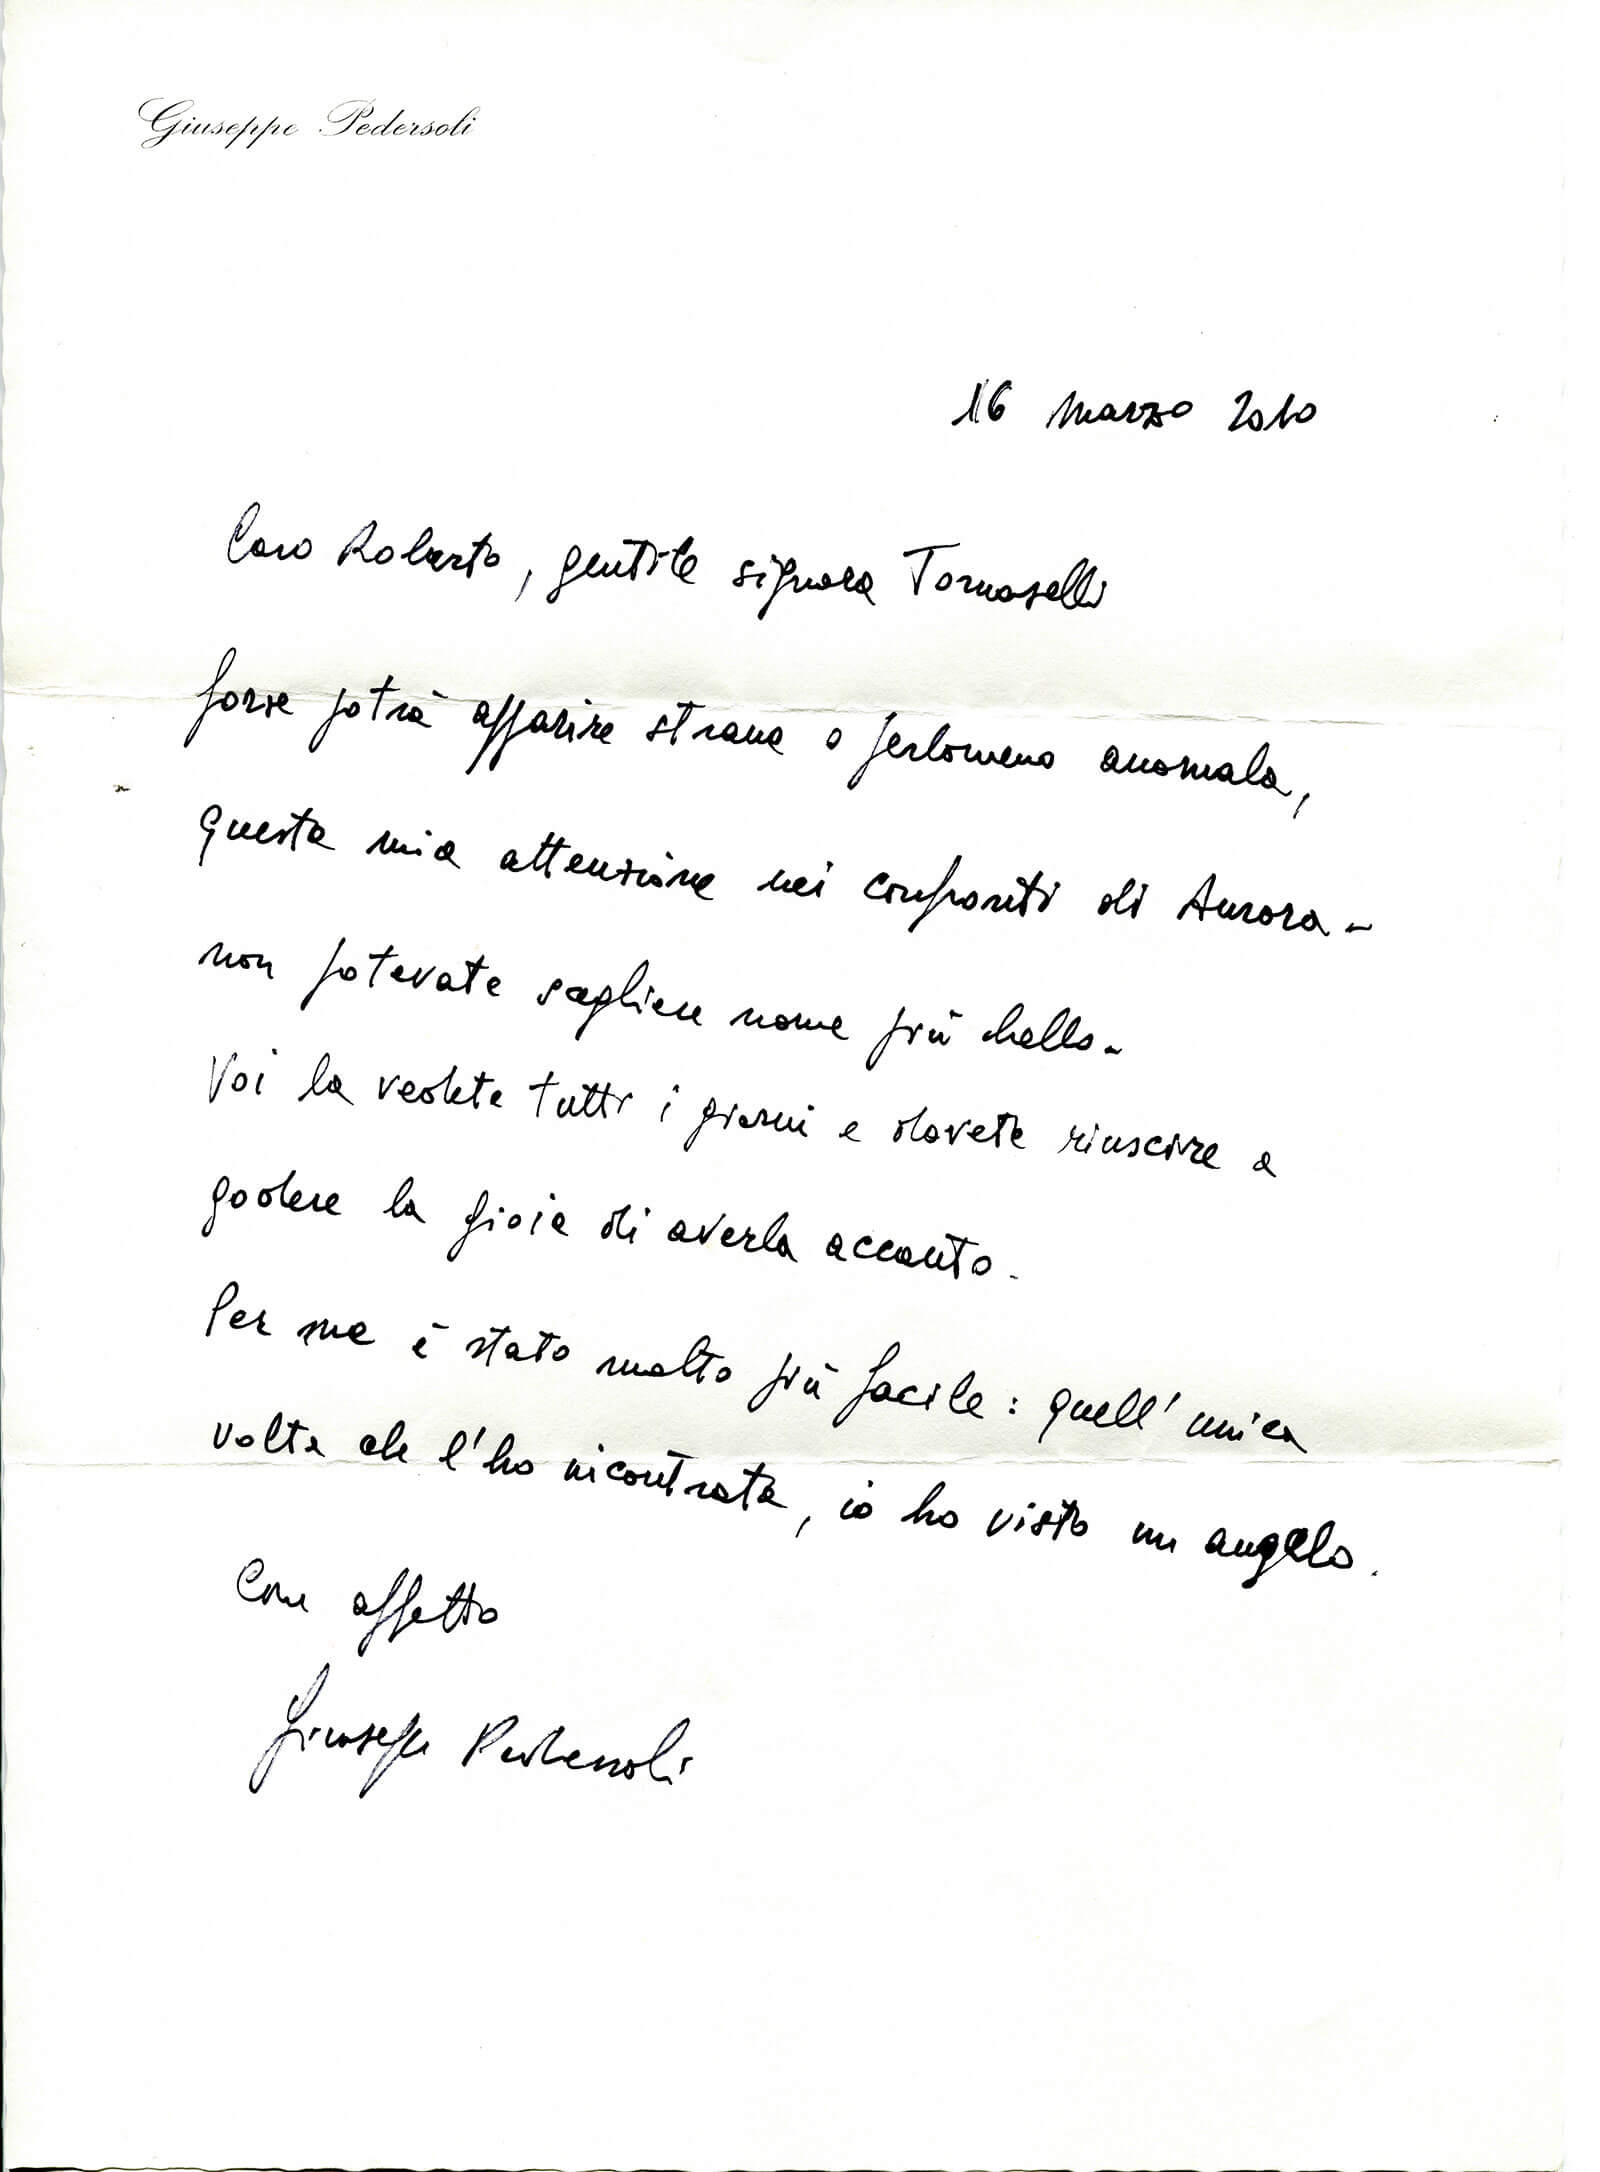 Giuseppe Pedersoli
16 marzo 2010
Caro Roberto, gentile signora Tomaselli
forse potrà apparire strana o perlomeno anomala,
questa mia attenzione nei confronti di Aurora -
non potevate scegliere nome più bello -
Voi la vedete tutti i giorni e dovete riuscire a
godere la gioia di averla accanto -
Per me è stato molto più facile: quell'unica
volta che l'ho incontrata, io ho visto un angelo.
Con affetto
Giuseppe Pedersoli